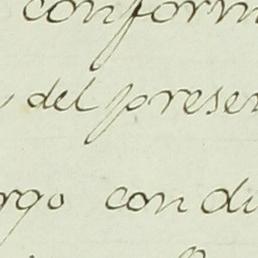 conform
del presen
rgo condu